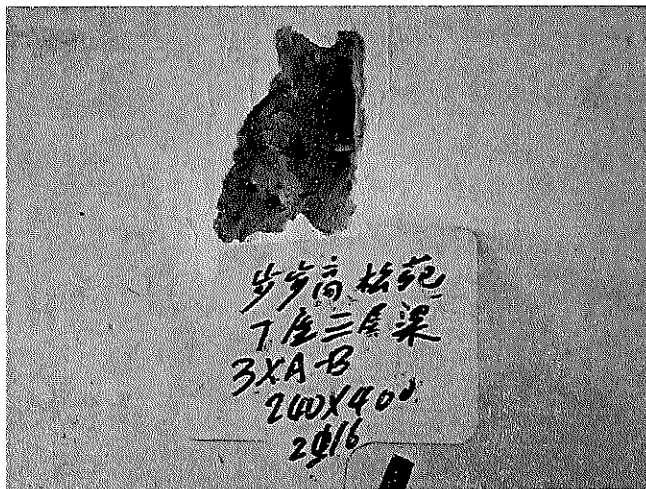 步步高松苑
7座二层梁
3XA-B
240X400
2Φ16